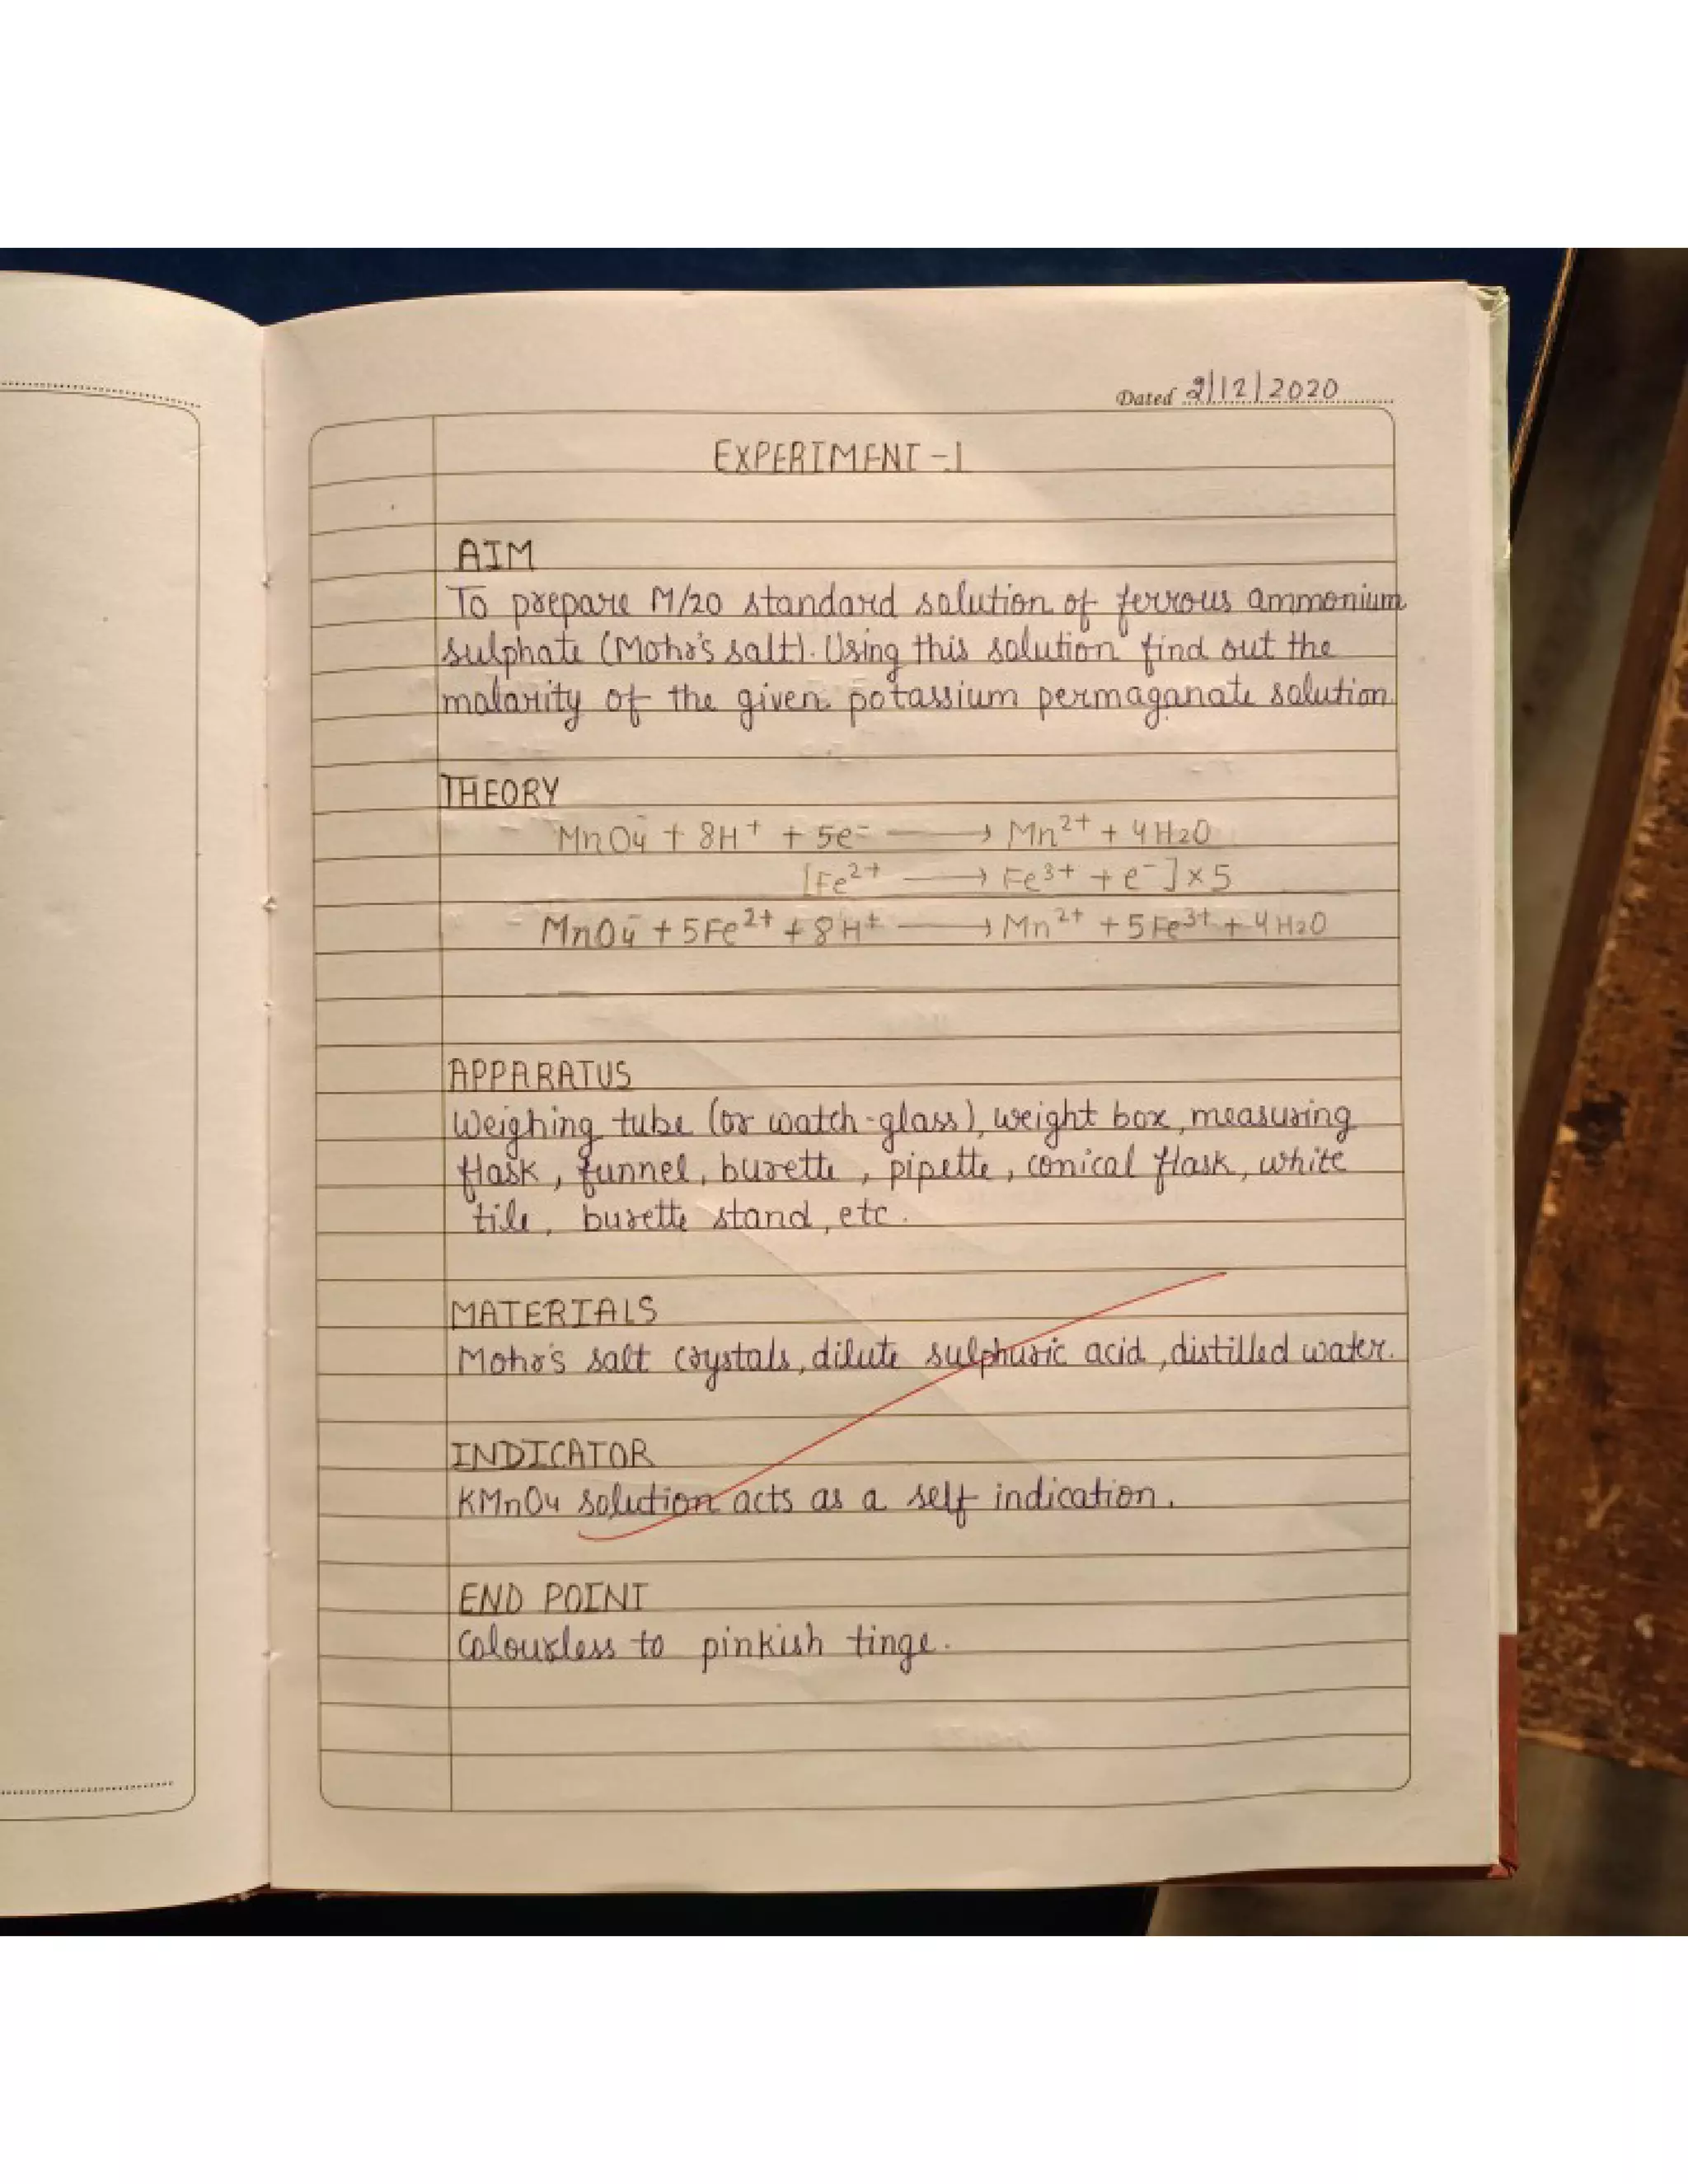 Dated 2/12/2020
EXPERIMENT - 1
AIM
To prepare M/20 standard solution of ferrous ammonium
sulphate (Mohr's salt). Using this solution find out the
molarity of the given potassium permaganate solution.
THEORY
MnO₄⁻ + 8H⁺ + 5e⁻ ⟶ Mn²⁺ + 4H₂O
[Fe²⁺ ⟶ Fe³⁺ + e⁻] × 5
MnO₄⁻ + 5Fe²⁺ + 8H⁺ ⟶ Mn²⁺ + 5Fe³⁺ + 4H₂O
APPARATUS
Weighing tube (or watch-glass), weight box, measuring
flask, funnel, burette, pipette, conical flask, white
tile, burette stand, etc.
MATERIALS
Mohr's salt crystals, dilute sulphuric acid, distilled water.
INDICATOR
KMnO₄ solution acts as a self indication.
END POINT
Colourless to pinkish tinge.